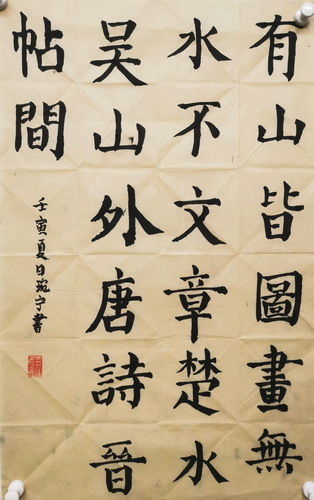 有山皆圖畫無
水不文章楚水
吳山外唐詩晉
帖間
壬寅夏日琬宁書